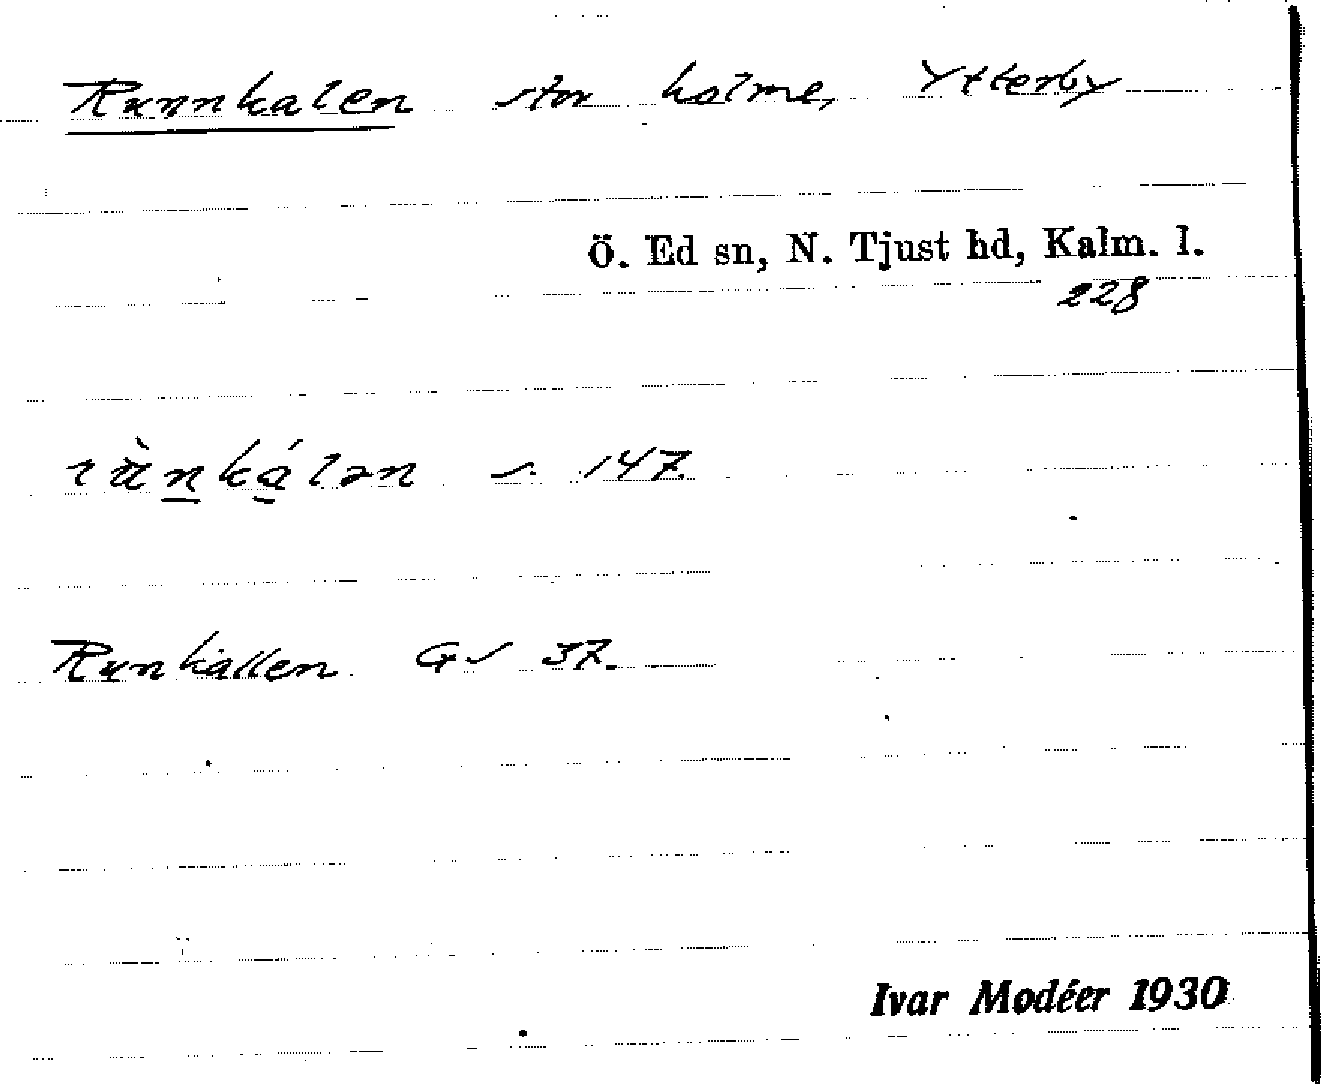 Runnkalen stor holme, Ytterby
Ö. Ed sn, N. Tjust hd, Kalm. l.
228
rùn̲ká̲lən s. 147.
Runkallen GS 37.
Ivar Modéer 1930